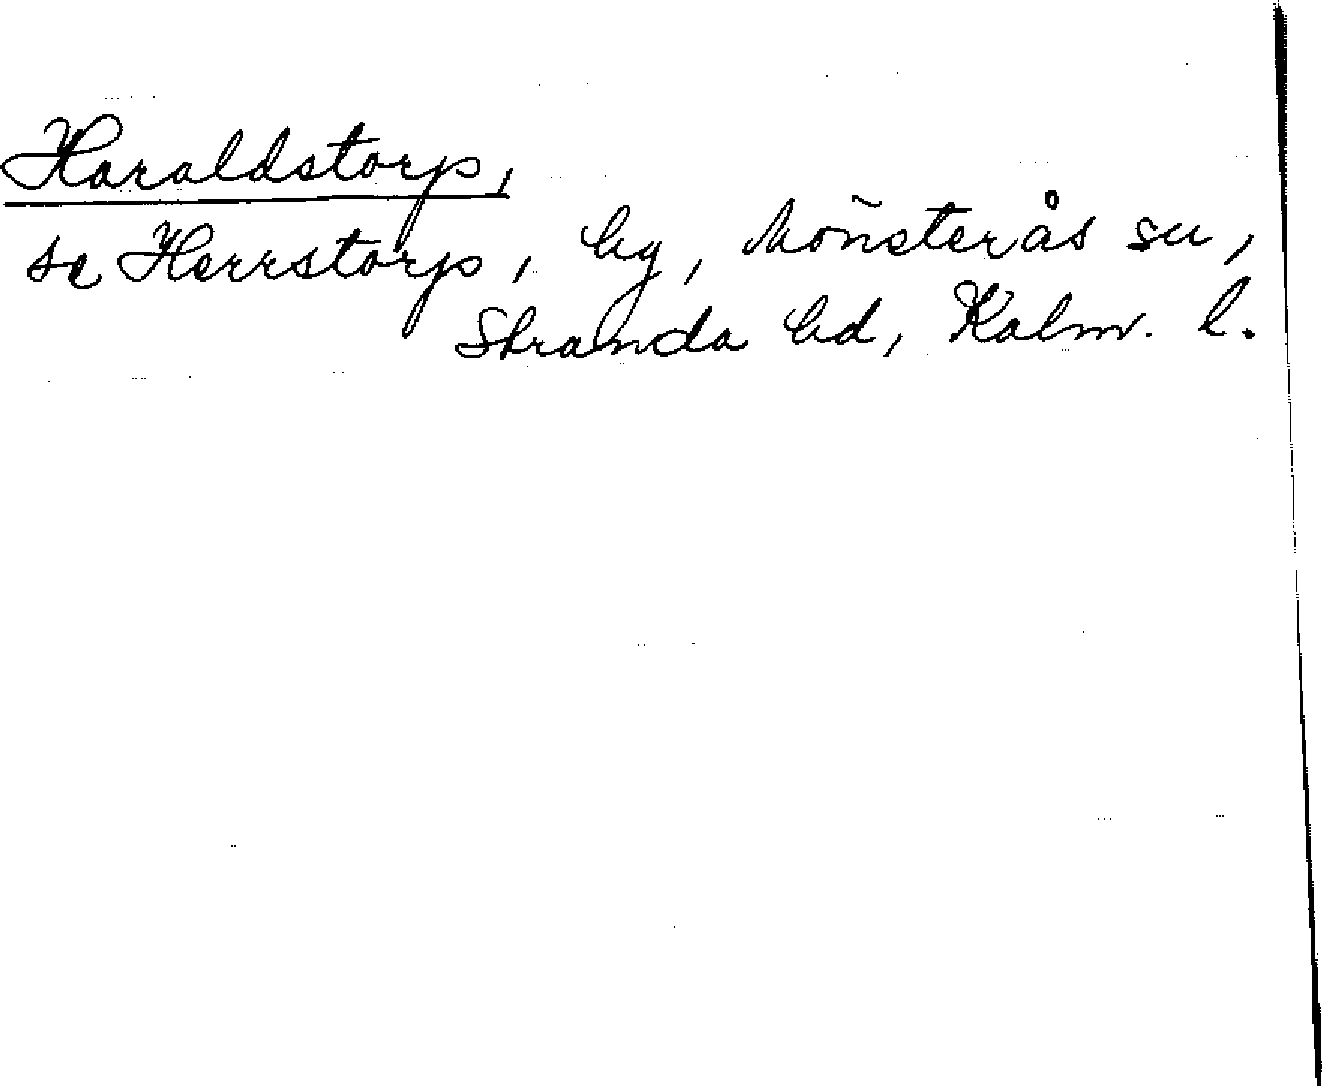 Haraldstorp,
se Herrstorp, by, Mönsterås sn,
Stranda hd, Kalm. l.